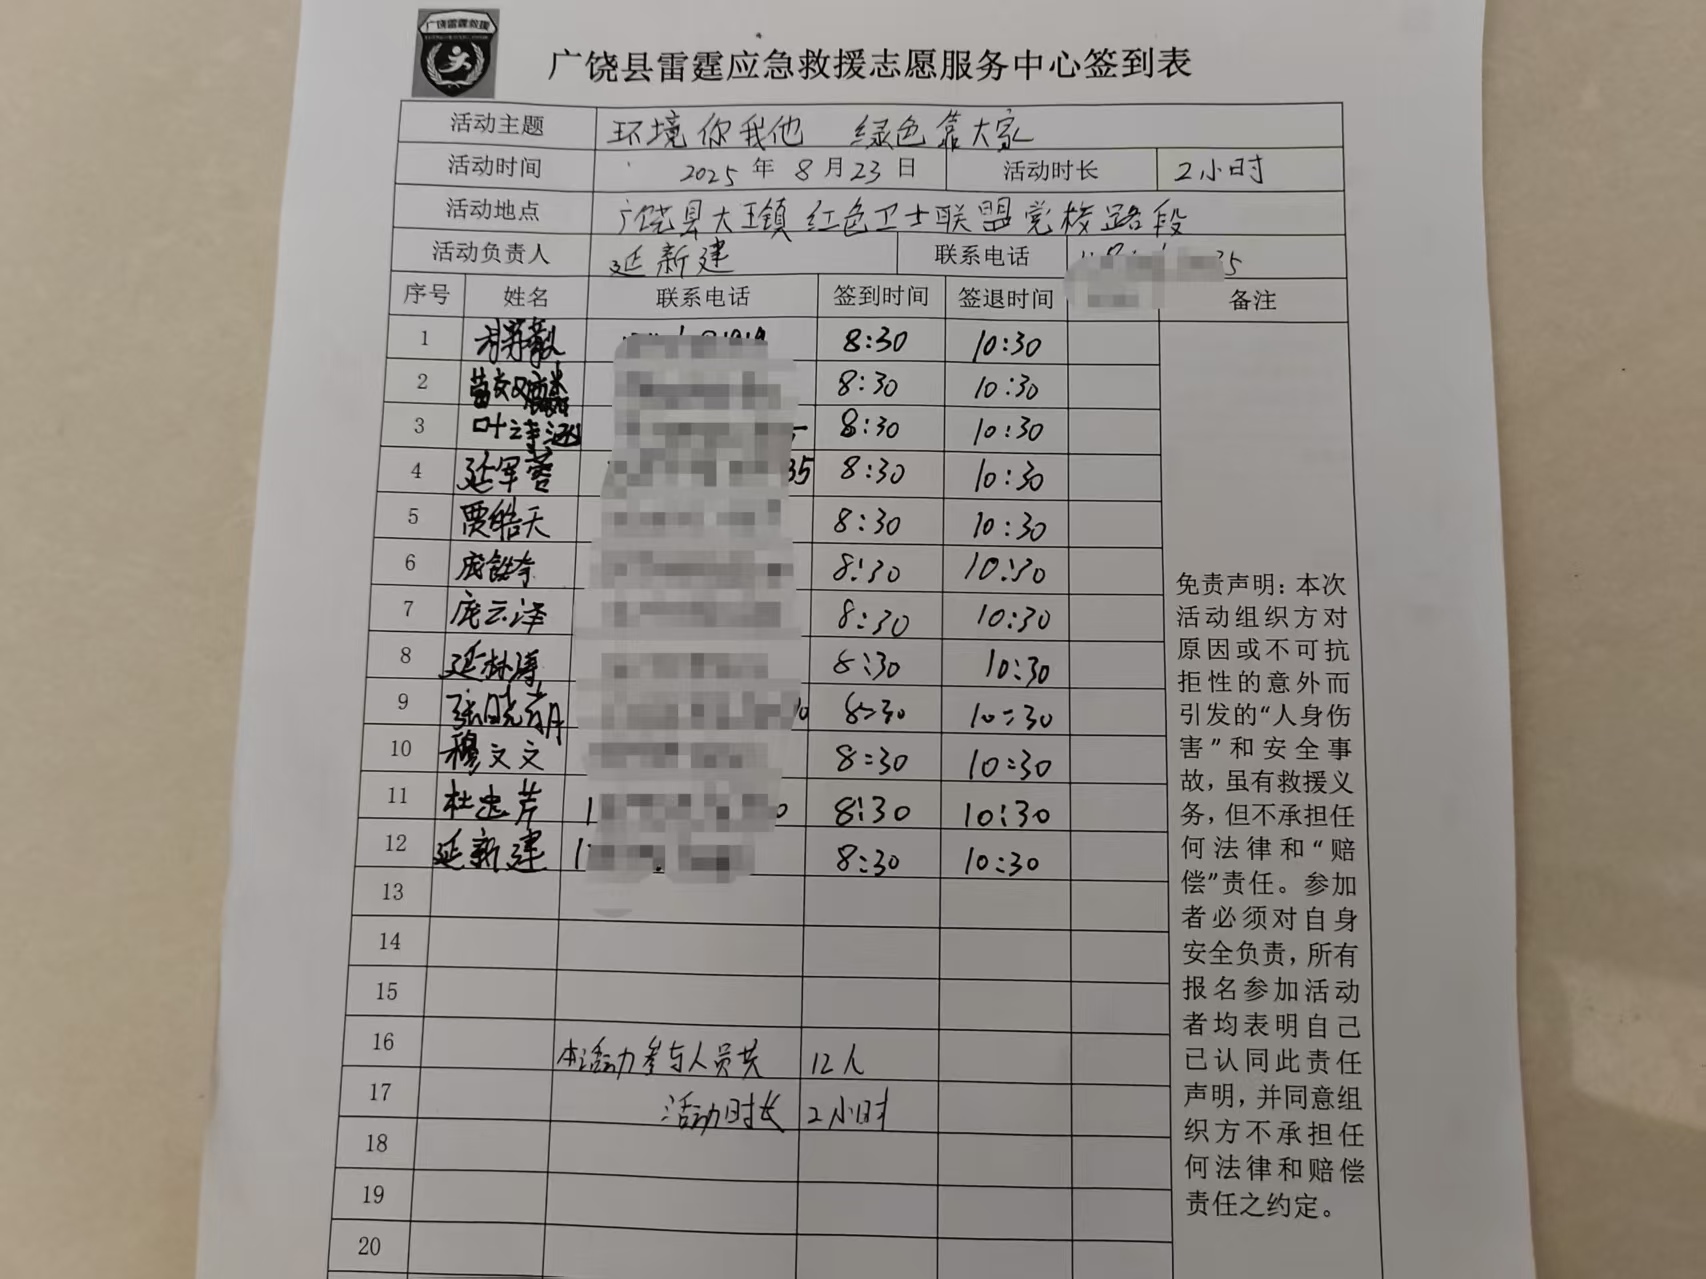 广饶雷霆救援
广饶县雷霆应急救援志愿服务中心签到表
活动主题 环境你我他 绿色靠大家
活动时间 2025年8月23日 活动时长 2小时
活动地点 广饶县大王镇红色卫士联盟党校路段
活动负责人 延新建 联系电话 35
序号 姓名 联系电话 签到时间 签退时间 备注
1 8:30 10:30
2 8:30 10:30
3 叶诗涵 8:30 10:30
4 延军蓉 35 8:30 10:30
5 贾皓天 8:30 10:30
6 8:30 10:30
7 庞云泽 8:30 10:30
8 延林涛 8:30 10:30
9 张晓丽 8:30 10:30
10 穆文文 8:30 10:30
11 杜忠芹 1 0 8:30 10:30
12 延新建 1 8:30 10:30
13
14
15
16 本活动参与人员共 12人
17 活动时长 2小时
18
19
20
免责声明：本次
活动组织方对
原因或不可抗
拒性的意外而
引发的“人身伤
害”和安全事
故，虽有救援义
务，但不承担任
何法律和“赔
偿”责任。参加
者必须对自身
安全负责，所有
报名参加活动
者均表明自己
已认同此责任
声明，并同意组
织方不承担任
何法律和赔偿
责任之约定。